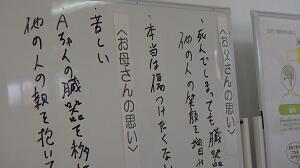 〈お父さんの思い〉
・死んでしまっても臓器
他の人の笑顔を増や
・本当は傷つけたくな
〈お母さんの思い〉
・苦しい
Aちゃんの臓器を移
他の人の親を抱いて